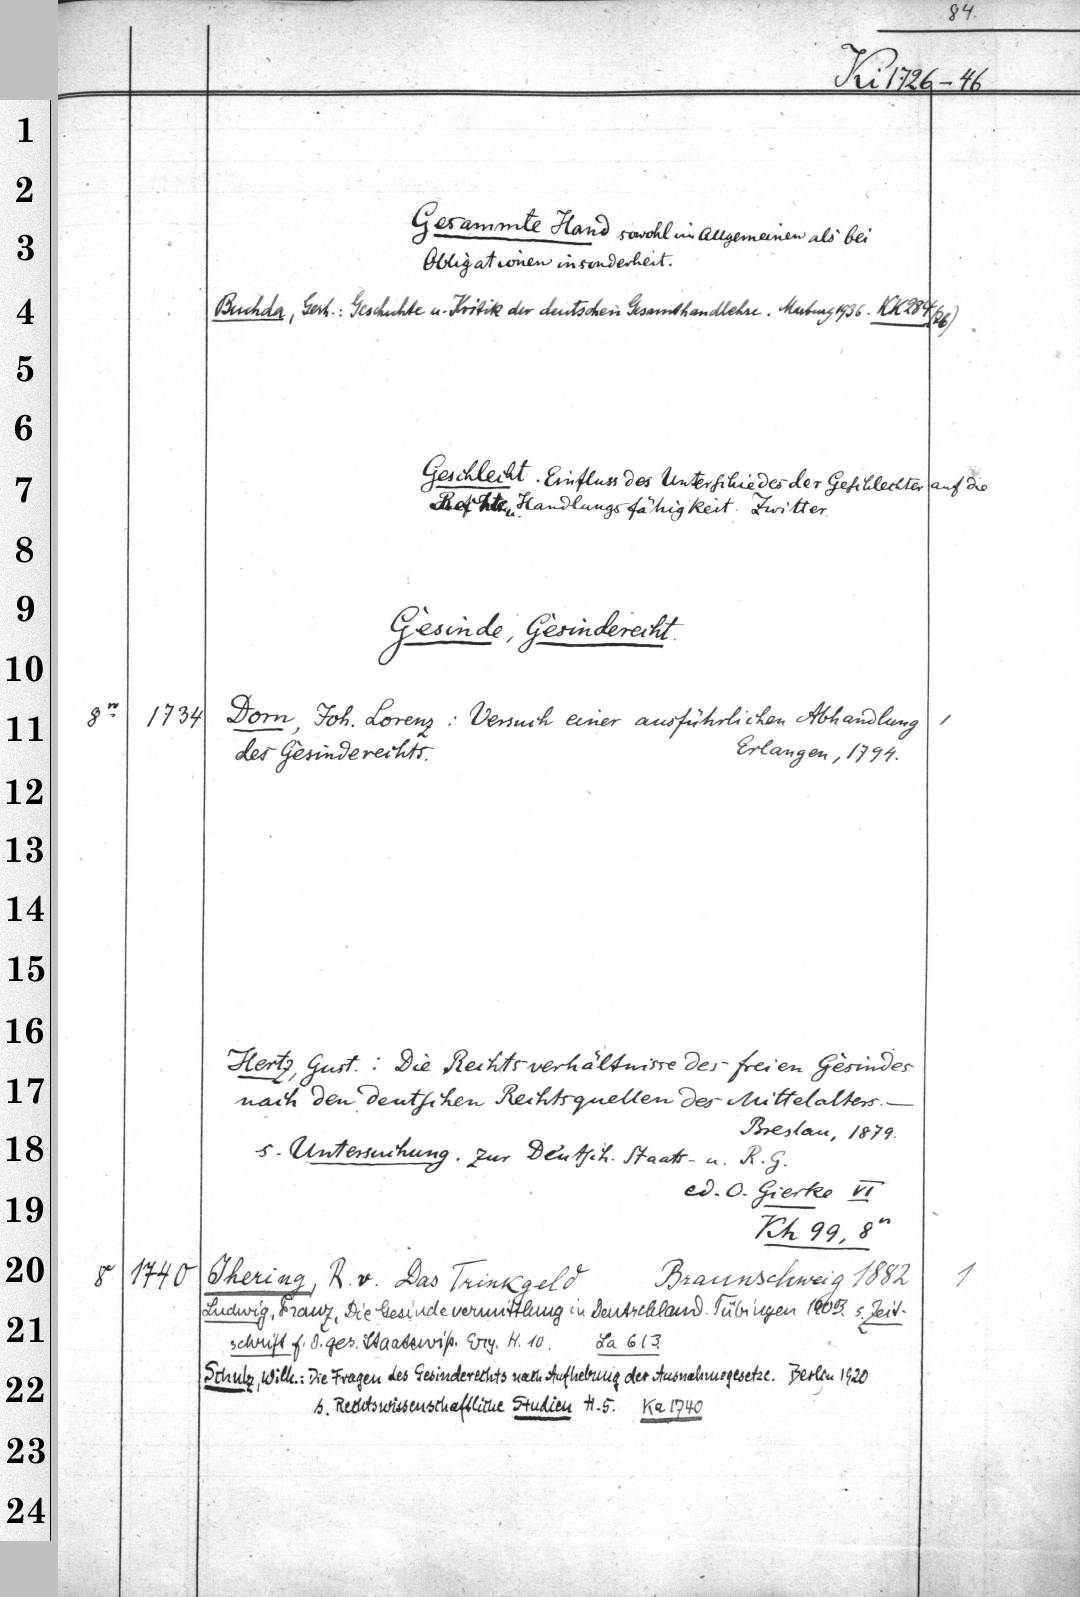 84.
Ki 1726-46
1
2
Gesammte Hand sowohl im Allgemeinen als bei
3
Obligationen insonderheit.
4
Buchda, Gerh.: Geschichte u. Kritik der deutschen Gesamthandlehre. Marburg 1936. KK 284 (26)
5
6
7
Geschlecht. Einfluss des Unterschiedes der Geschlechter auf die
Rechts u. Handlungsfähigkeit. Zwitter
8
9
Gesinde, Gesinderecht.
10
11
8º 1734 Dorn, Joh. Lorenz: Versuch einer ausführlichen Abhandlung 1
des Gesinderechts. Erlangen, 1794.
12
13
14
15
16
Hertz, Gust.: Die Rechtsverhältnisse des freien Gesindes
17
nach den deutschen Rechtsquellen des Mittelalters. —
Breslau, 1879.
18
s. Untersuchung. zur Deutsch. Staats- u. R. G.
19
ed. O. Gierke VI
Kh 99, 8º
20
8º 1740 Jhering, R. v. Das Trinkgeld Braunschweig 1882 1
Ludwig, Franz, Die Gesindevermittlung in Deutschland. Tübingen 1903. s. Zeit-
21
schrift f. d. ges. Staatswiss. Erg. H. 10. La 613
22
Schulz, Wilh.: Die Fragen des Gesinderechts nach Aufhebung der Ausnahmegesetze. Berlin 1920
s. Rechtswissenschaftliche Studien H. 5. Ka 1740
23
24